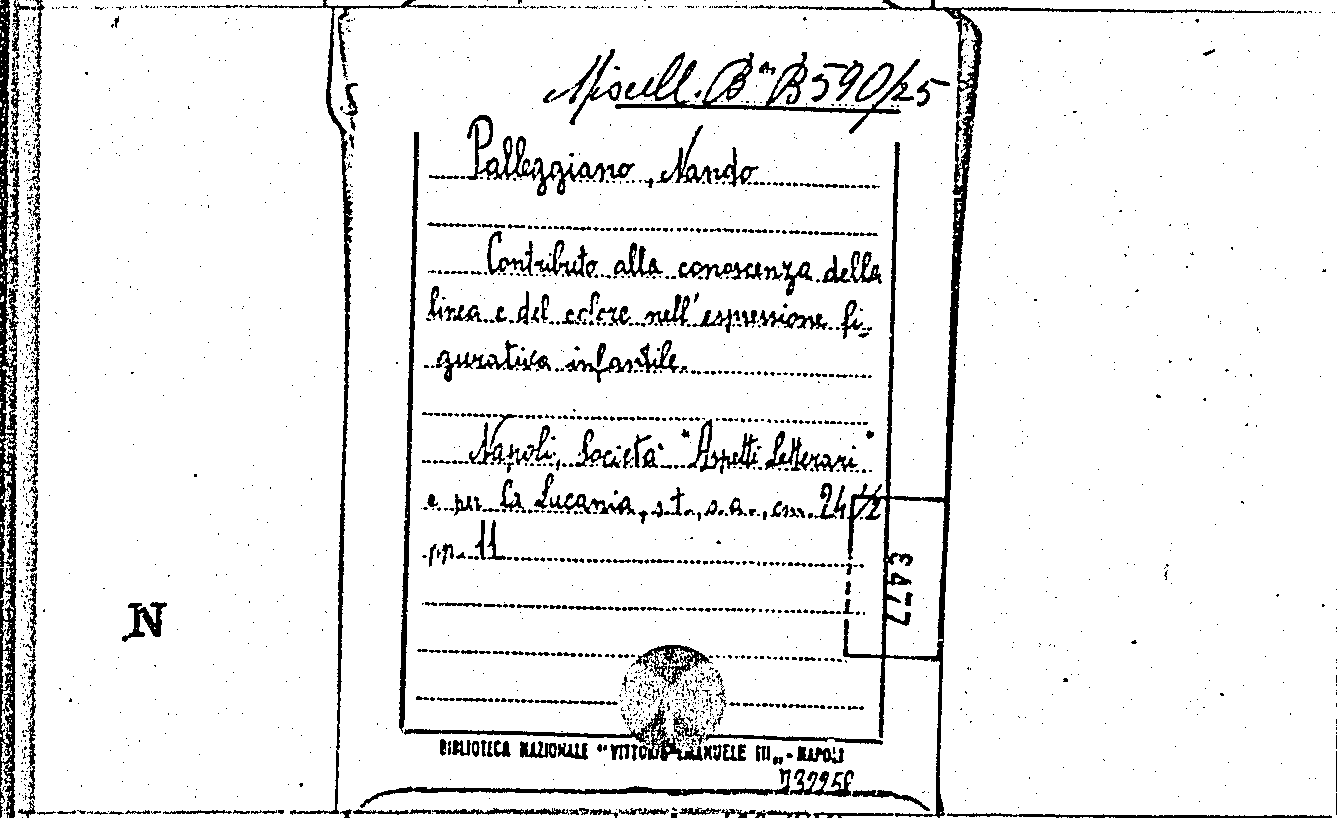 Miscell. Bᵃ B 590/25
Palleggiano, Nando
Contributo alla conoscenza della
linea e del colore nell'espressione fi-
gurativa infantile.
Napoli, Società "Aspetti Letterari"
e per la Lucania, s.t., s.a., cm. 24 ½
pp. 11
N
BIBLIOTECA NAZIONALE "VITTORIO EMANUELE III„ - NAPOLI